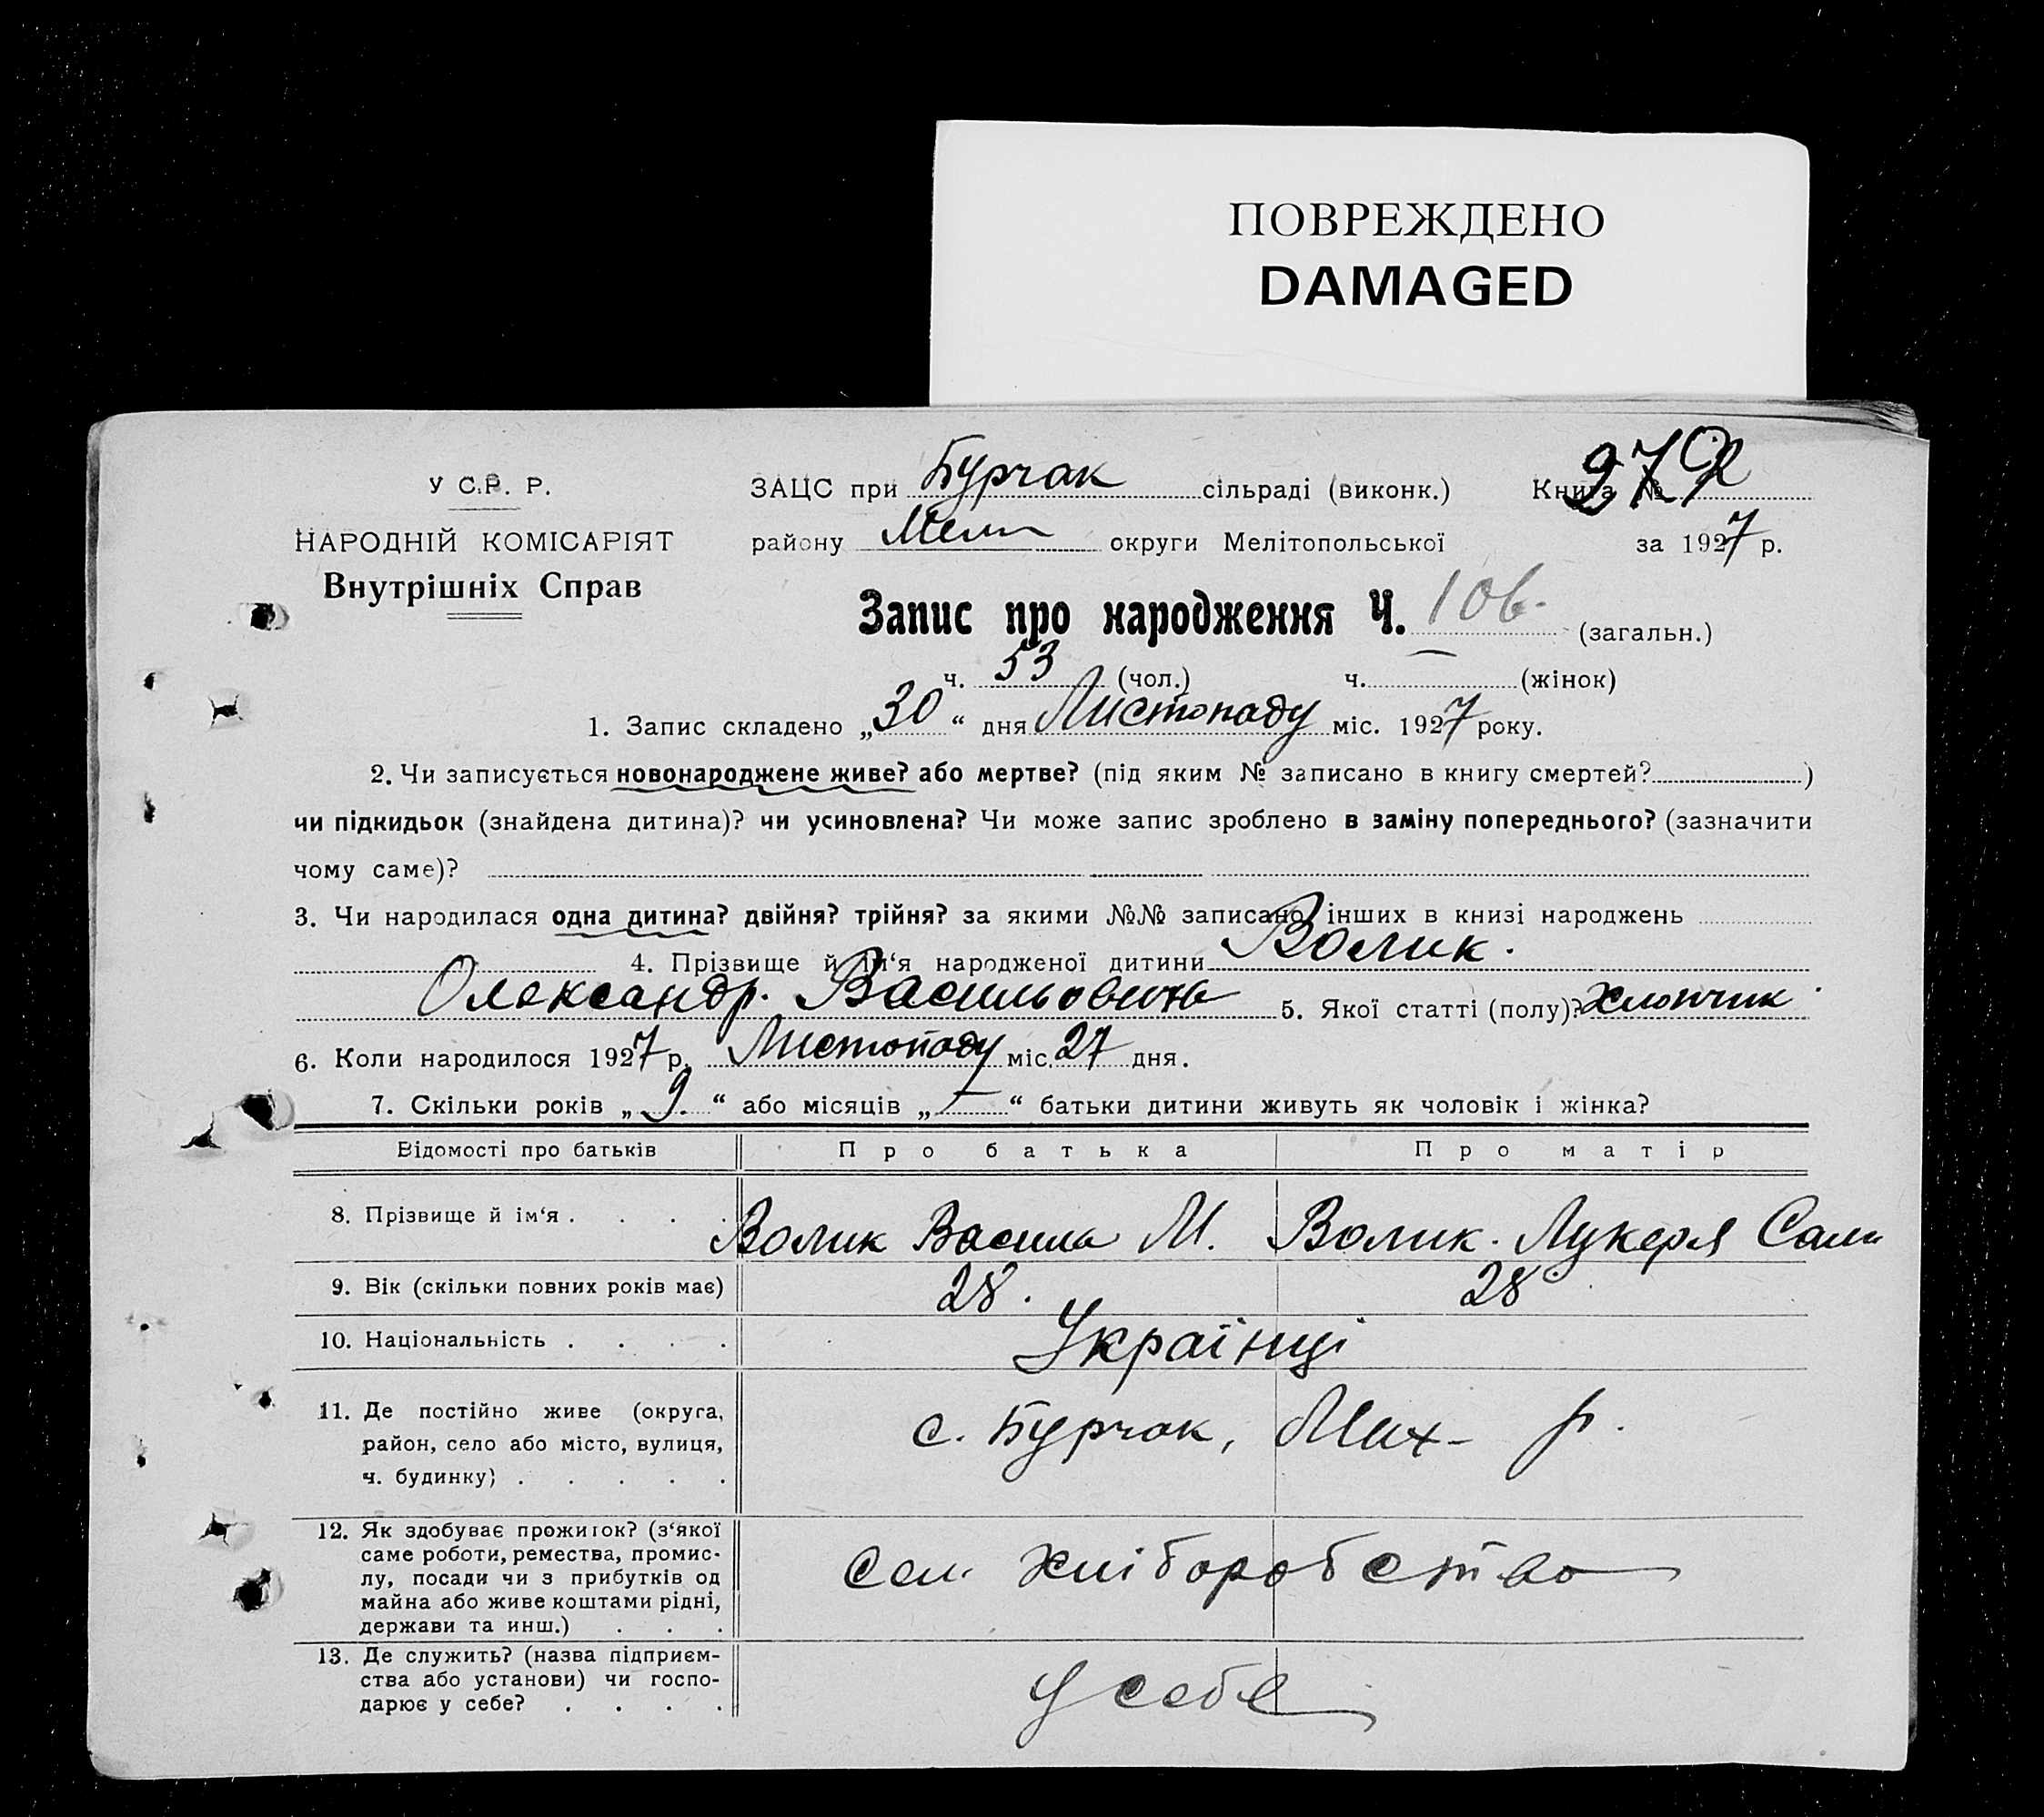 ПОВРЕЖДЕНО
DAMAGED
У С.Р. Р.
НАРОДНІЙ КОМІСАРІЯТ
Внутрішніх Справ
ЗАЦС при Бурчак сільраді (виконк.)
Книга №
району Мели округи Мелітопольської
за 1927 р.
Запис про народження Ч. 106. (загальн.)
ч. 53 (чол.) ч. — (жінок)
1. Запис складено „30“ дня Листопаду міс. 1927 року.
2. Чи записується новонароджене живе? або мертве? (під яким № записано в книгу смертей? )
чи підкидьок (знайдена дитина)? чи усиновлена? Чи може запис зроблено в заміну попереднього? (зазначити
чому саме)?
3. Чи народилася одна дитина? двійня? трійня? за якими №№ записано інших в книзі народжень
4. Прізвище й ім‘я народженої дитини Волик.
Олександр. Васильовичь 5. Якої статті (полу)? Хлопчик
6. Коли народилося 1927 р. Листопаду міс. 27 дня.
7. Скільки років „9.“ або місяців „—“ батьки дитини живуть як чоловік і жінка?
Відомості про батьків Про батька Про матір
8. Прізвище й ім‘я . . . . Волик Василь М. Волик. Лукеря Сам
9. Вік (скільки повних років має) 28. 28
10. Національність . . . . Українці
11. Де постійно живе (округа,
район, село або місто, вулиця,
ч. будинку) . . . . .
с. Бурчак, Мих- р.
12. Як здобуває прожиток? (з‘якої
саме роботи, ремества, промис-
лу, посади чи з прибутків од
майна або живе коштами рідні,
держави та инш.) . . .
Сел. хліборобство
13. Де служить? (назва підприєм-
ства або установи) чи госпо-
дарює у себе? . . . .
У себе